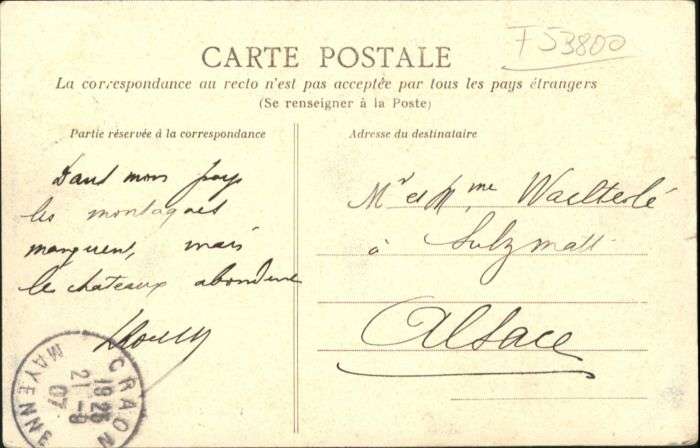 F 53800
CARTE POSTALE
La correspondance au recto n'est pas acceptée par tous les pays étrangers
(Se renseigner à la Poste)
Partie réservée à la correspondance
Adresse du destinataire
Dans mon pays
les montagnes
manquent, mais
les chateaux abondent
Mr et Mme Waelterlé
à Sulzmatt
Alsace
CRAON
19 25
21 - 8
07
MAYENNE